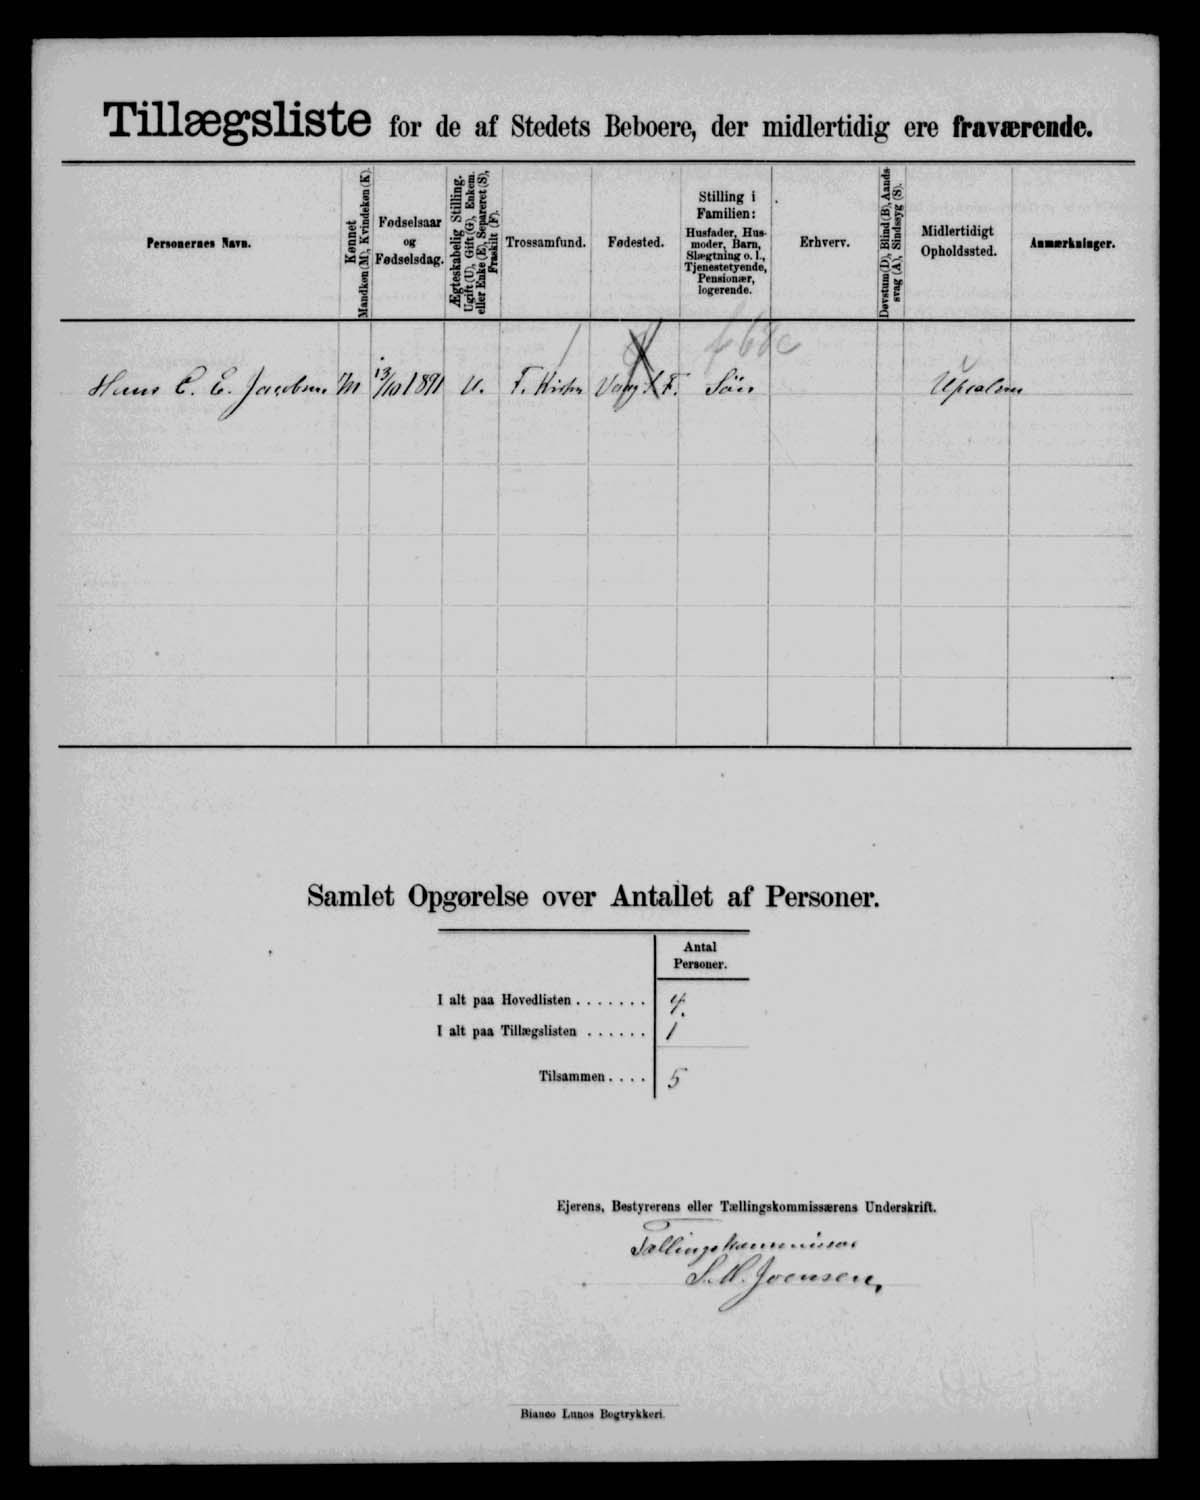 Tillægsliste for de af Stedets Beboere, der midlertidig ere fraværende.
Personernes Navn.
Kønnet
Mandkøn (M), Kvindekøn (K).
Fødselsaar
og
Fødselsdag.
Ægteskabelig Stilling.
Ugift (U), Gift (G), Enkem.
eller Enke (E), Separeret (S),
Fraskilt (F).
Trossamfund.
Fødested.
Stilling i
Familien:
Husfader, Hus-
moder, Barn,
Slægtning o. l.,
Tjenestetyende,
Pensionær,
logerende.
Erhverv.
Døvstum (D), Blind (B), Aands-
svag (A), Sindssyg (S).
Midlertidigt
Opholdssted.
Anmærkninger.
Hans C. E. Jacobsen M 13/10 1891 U. F. Kirken F. Sön
Samlet Opgørelse over Antallet af Personer.
Antal
Personer.
I alt paa Hovedlisten . . . . . . . 4.
I alt paa Tillægslisten . . . . . . 1
Tilsammen . . . . 5
Ejerens, Bestyrerens eller Tællingskommissærens Underskrift.
Tællingskommissær
S. H. Joensen,
Bianco Lunos Bogtrykkeri.